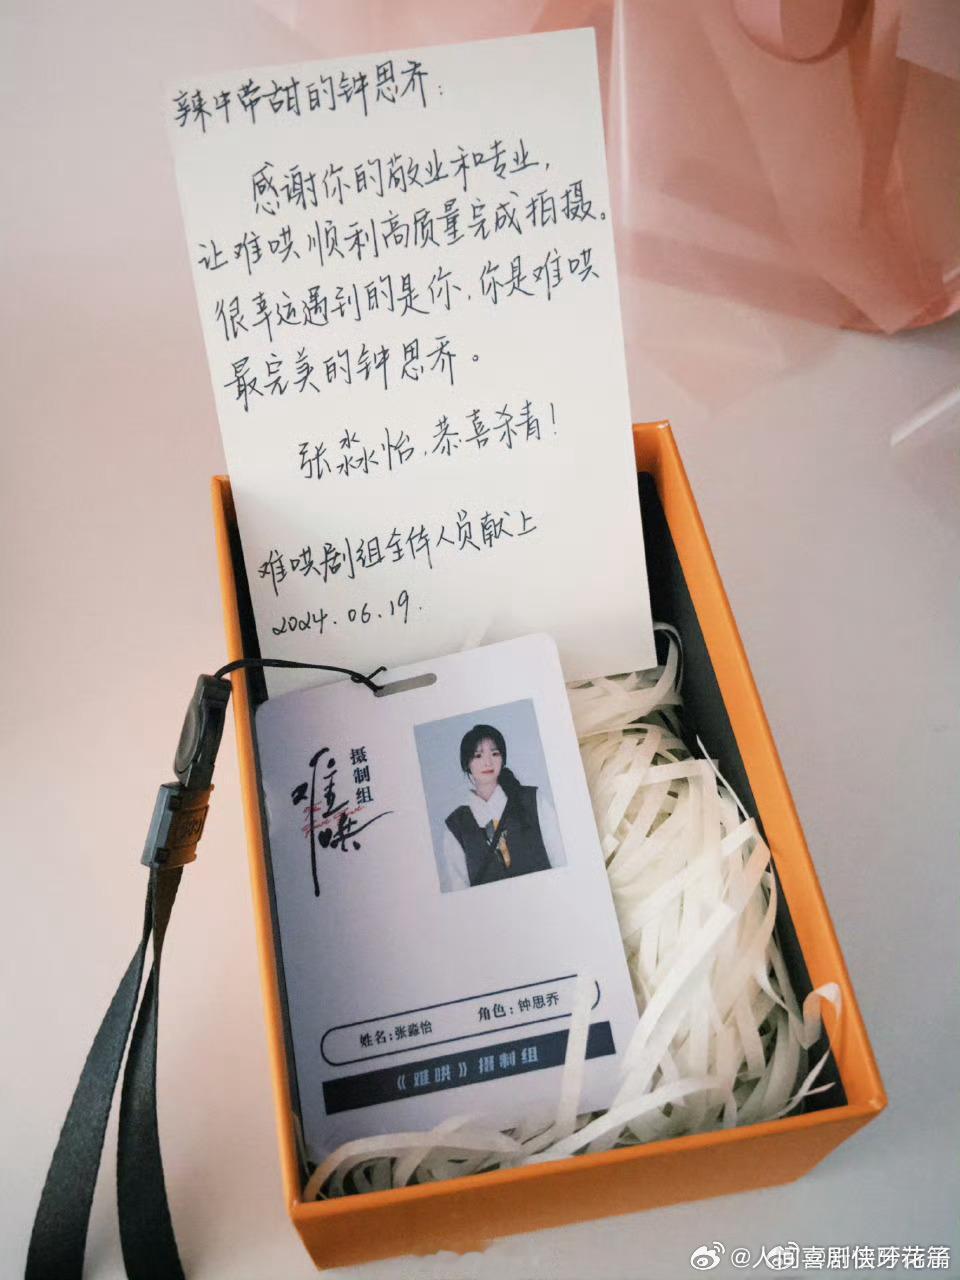 辣中带甜的钟思乔：
感谢你的敬业和专业，
让难哄顺利高质量完成拍摄。
很幸运遇到的是你，你是难哄
最完美的钟思乔。
张淼怡，恭喜杀青！
难哄剧组全体人员献上
2024.06.19.
难哄
摄制组
The First Frost
姓名：张淼怡
角色：钟思乔
《难哄》摄制组
@人间喜剧侠吇花箔